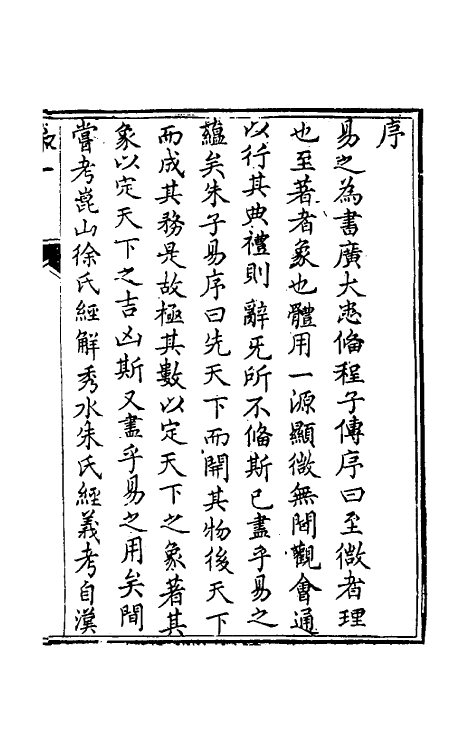 序
易之為書廣大悉備程子傳序曰至微者理
也至著者象也體用一源顯微無間觀會通
以行其典禮則辭无所不備斯已盡乎易之
蘊矣朱子易序曰先天下而開其物後天下
而成其務是故極其數以定天下之象著其
象以定天下之吉凶斯又盡乎易之用矣間
嘗考崑山徐氏經解秀水朱氏經義考自漢